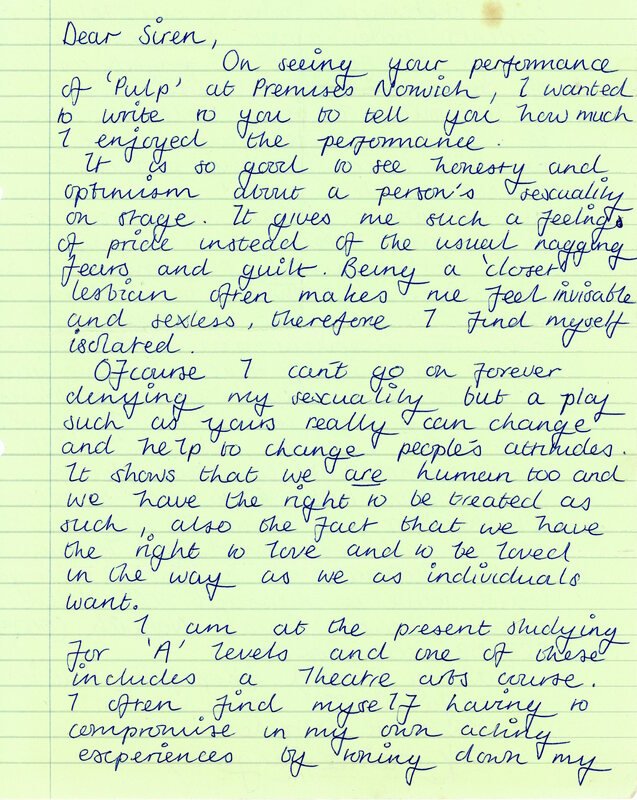 Dear Siren,
On seeing your performance
of 'Pulp' at Premises Norwich, I wanted
to write to you to tell you how much
I enjoyed the performance.
It is so good to see honesty and
optimism about a person's sexuality
on stage. It gives me such a feelings
of pride instead of the usual nagging
fears and guilt. Being a 'closet'
lesbian often makes me feel invisable
and sexless, therefore I find myself
isolated.
Ofcourse I can't go on forever
denying my sexuality but a play
such as yours really can change
and help to change people's attitudes.
It shows that we are human too and
we have the right to be treated as
such, also the fact that we have
the right to love and to be loved
in the way as we as individuals
want.
I am at the present studying
for 'A' levels and one of these
includes a Theatre arts course.
I often find myself having to
compromise in my own acting
experiences by toning down my